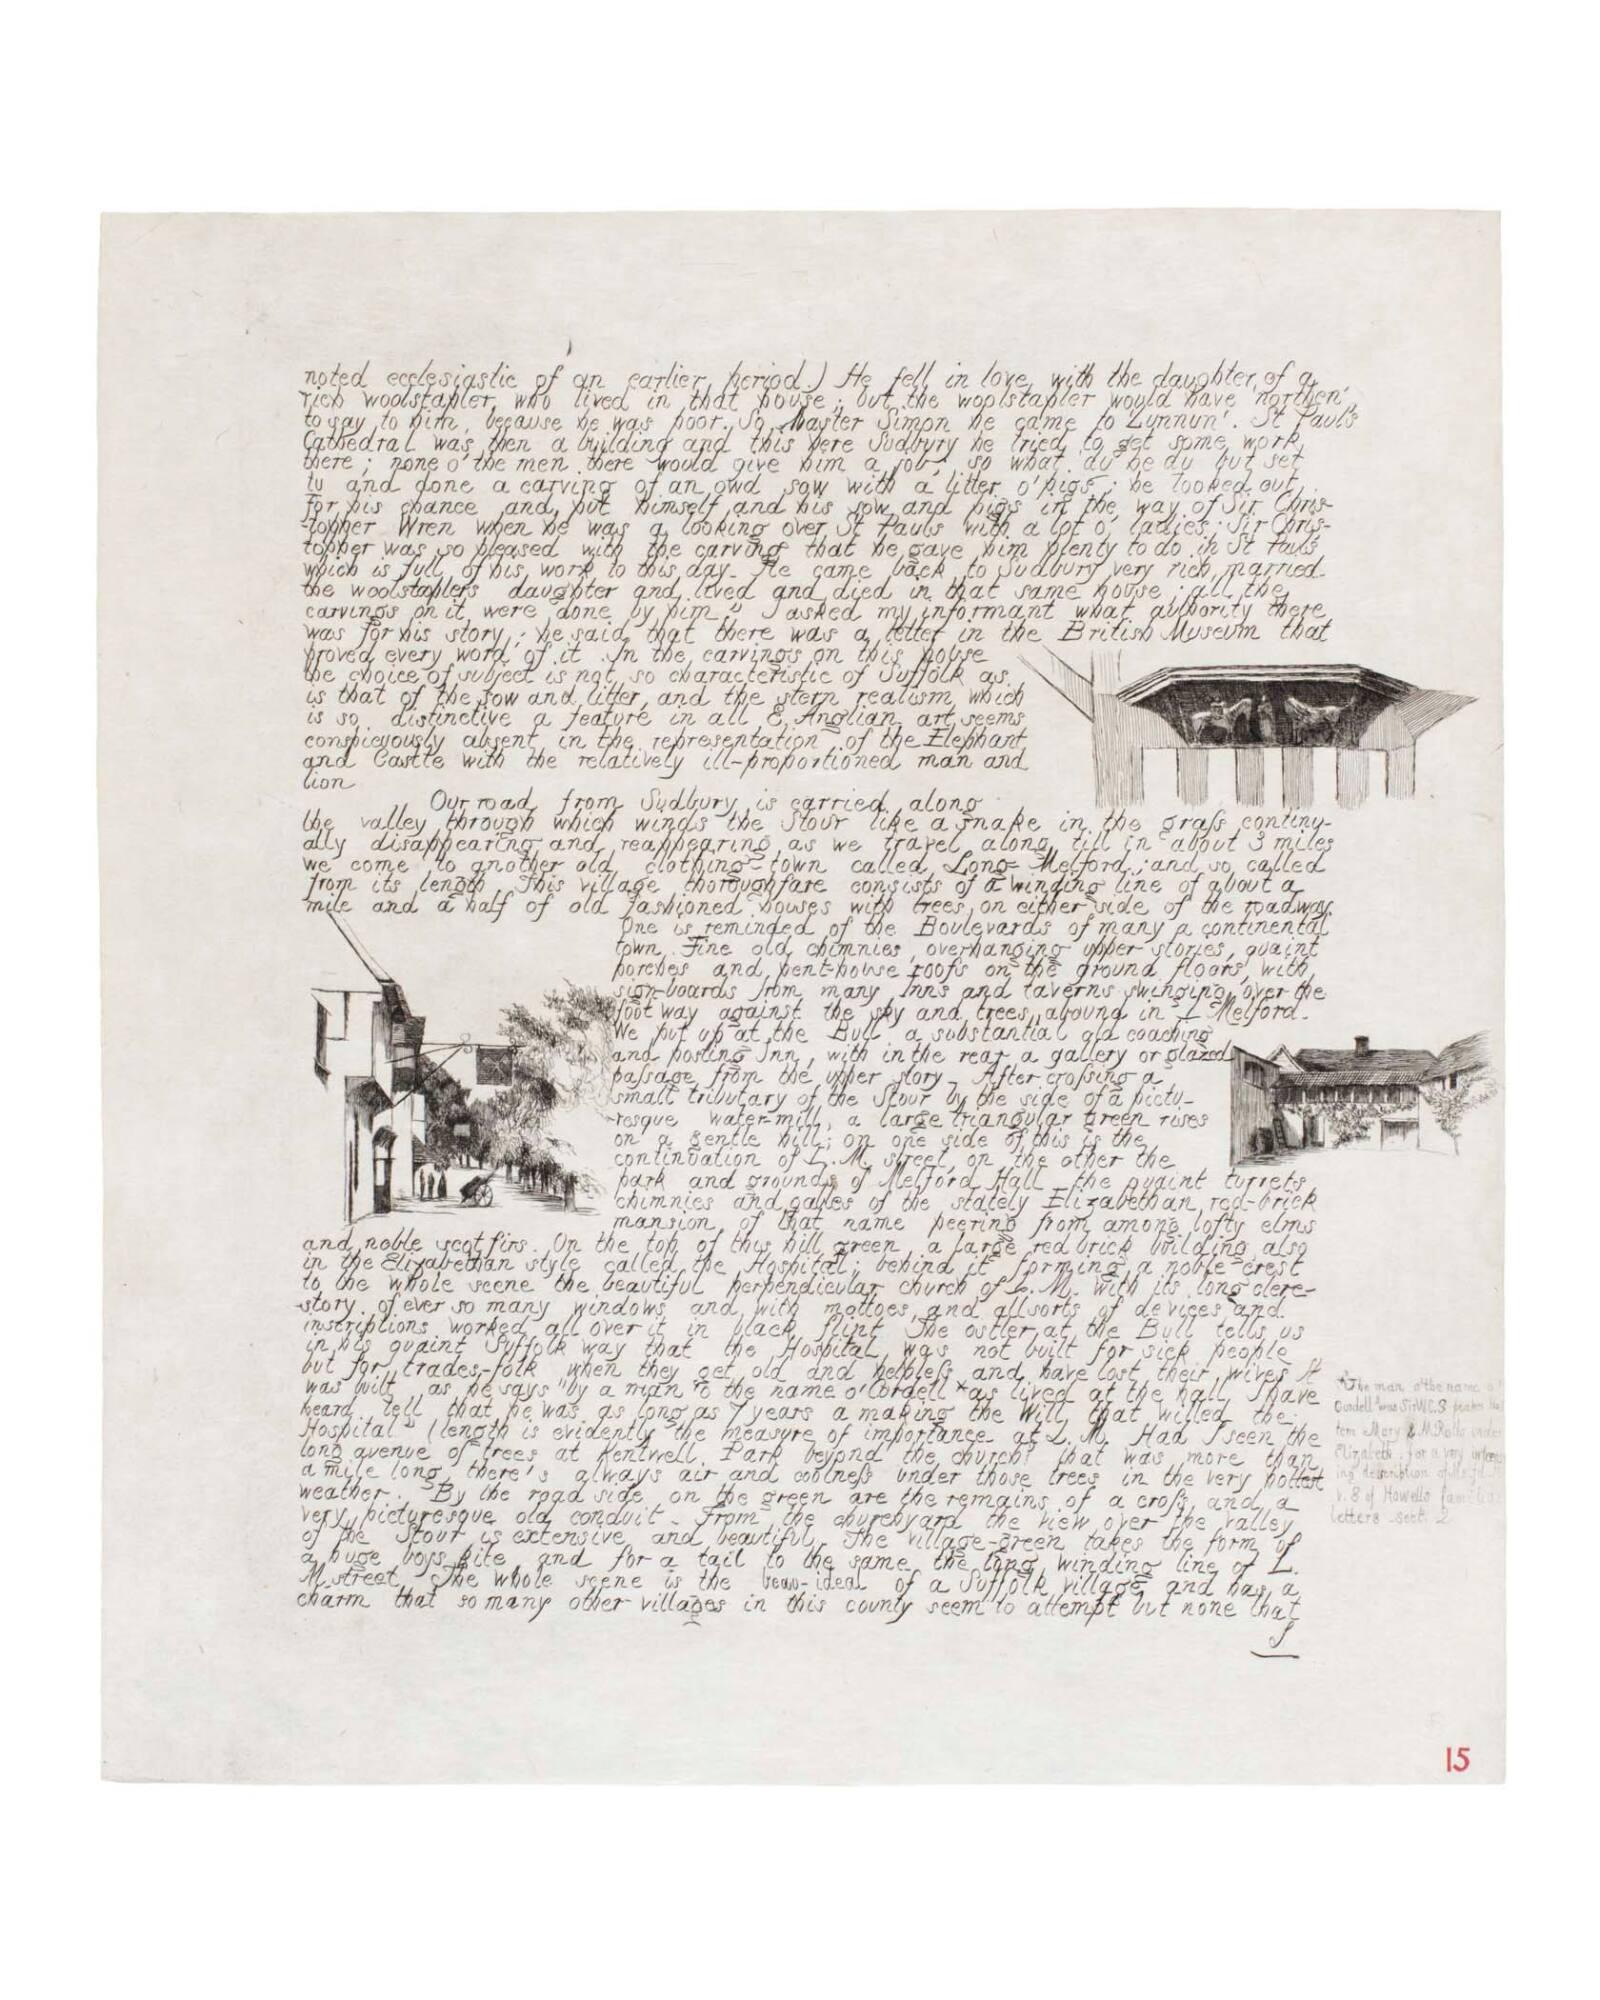 noted ecclesiastic of an earlier period.) He fell in love with the daughter of a
rich woolstapler who lived in that house; but the woolstapler would have 'northen'
to say to him, because he was poor. So Master Simon he came to Lunnun'. St Paul's
Cathedral was then a building and this here Sudbury he tried to get some work
there; none o' the men there would give him a job, so what 'du' he du but set
tu and done a carving of an owd sow with a litter o' pigs; he looked out
for his chance and put himself and his sow and pigs in the way of Sir Chris-
-topher Wren when he was a looking over St Pauls with a lot o' ladies; Sir Chris-
topher was so pleased with the carving that he gave him plenty to do in St Pauls
which is full of his work to this day. He came back to Sudbury very rich, married
the woolstaplers daughter and lived and died in that same house; all the
carvings on it were done by him." I asked my informant what authority there
was for his story; he said that there was a letter in the British Museum that
proved every word of it. In the carvings on this house
the choice of subject is not so characteristic of Suffolk as
is that of the sow and litter, and the stern realism which
is so distinctive a feature in all E. Anglian art seems
conspicuously absent in the representation of the Elephant
and Castle with the relatively ill-proportioned man and
lion
Our road from Sudbury is carried along
the valley through which winds the Stour like a snake in the grass continu-
ally disappearing and reappearing as we travel along till in about 3 miles
we come to another old clothing-town called Long-Melford; and so called
from its length. This village thoroughfare consists of a winding line of about a
mile and a half of old fashioned houses with trees on either side of the roadway.
One is reminded of the Boulevards of many a continental
town. Fine old chimnies, overhanging upper stories, quaint
porches and pent-house roofs on the ground floors, with
sign-boards from many Inns and taverns swinging over the
foot way against the sky and trees, abound in L. Melford.
We put up at the Bull a substantial old coaching
and posting Inn, with in the rear a gallery or glazed
passage from the upper story. After crossing a
small tributary of the Stour by the side of a pictu-
-resque water-mill, a large triangular green rises
on a gentle hill; on one side of this is the
continuation of L. M. street, on the other the
park and grounds of Melford Hall the quaint turrets
chimnies and gables of the stately Elizabethan red-brick
mansion of that name peering from among lofty elms
and noble scot firs. On the top of this hill green a large red brick building also
in the Elizabethan style called the Hospital; behind it forming a noble crest
to the whole scene the beautiful perpendicular church of L. M. with its long clere-
-story of ever so many windows and with mottoes and allsorts of devices and
inscriptions worked all over it in black flint The ostler at the Bull tells us
in his quaint Suffolk way that the Hospital was not built for sick people
but for trades-folk when they get old and helpless and have lost their wives It
was built as he says "by a man o' the name o' Cordell * as lived at the hall, I have
heard tell that he was as long as 7 years a making the Will that willed the
Hospital" (length is evidently the measure of importance at L. M. Had I seen the
long avenue of trees at Kentwell Park beyond the church? that was more than
a mile long, there's always air and coolness under those trees in the very hottest
weather. By the road side on the green are the remains of a cross and a
very picturesque old conduit. From the churchyard the view over the valley
of the Stour is extensive and beautiful. The village-green takes the form of
a huge boys kite and for a tail to the same the long winding line of L.
M. street The whole scene is the beau-ideal of a Suffolk village and has a
charm that so many other villages in this county seem to attempt but none that
The man o' the name o'
Cordell was Sir W.C.
tem Mary & M. Rolls under
Elizabeth. for a very interest
ing description of
v. 8 of Howells familiar
letters sect. 2
15